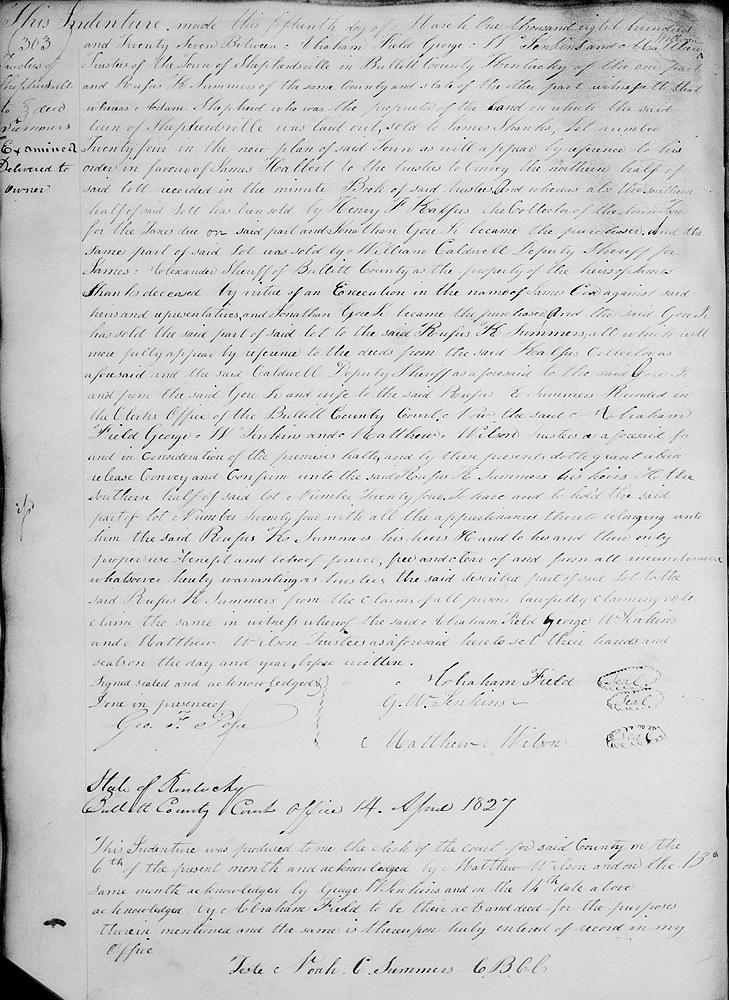 This Indenture made this fifteenth day of March One thousand eight hundred
363
and Twenty Seven Between Abraham Field George W Jenkins and Matthew Wilson
Trustees of the Town of Shepherdsville in Bullett County Kentucky of the one part
and Rufus K Summers of the same County and state of the other part witnesseth that
whereas Adam Shepherd who was the proprietor of the Land on which the said
town of Shepherdsville was laid out, sold to James Shanks, Lot number
Twenty four in the new plan of said Town as will appear by reference to his
order in favour of James Halbert to the trustees to Convey the northern half of
said lott recorded in the minute Book of said trustees, And whereas also the southern
half of said Lott has been sold by Henry F Kalfus the Collector of the town Tax
for the Taxes due on said part and Jonathan Gore Jr became the purchaser. And the
same part of said Lot was sold by William Caldwell Deputy Sheriff for
James Alexander Sheriff of Bullett County as the property of the heirs of James
Shanks deceased by virtue of an Execution in the name of James Cox against said
heirs and representatives, and Jonathan Gore Jr became the purchaser, And the said Gore Jr
has sold the said part of said lot to the said Rufus K Summers, all which will
more fully appear by reference to the deeds from the said Kalfus Collector as
aforesaid and the said Caldwell Deputy Sheriff as aforesaid to the said Gore Jr
and from the said Gore Jr and wife to the said Rufus K Summers Recorded in
the Clerks Office of the Bullett County Court. Now the said Abraham
Field George W Jenkins and Matthew Wilson Trustees as aforesaid for
and in Consideration of the premises hath, and by these presents doth grant alien
release Convey and Confirm unto the said Rufus K Summers his heirs &c the
Southern half of said lot Number Twenty four, To have and to hold the said
part of lot Number Twenty four with all the appurtenances thereto belonging unto
him the said Rufus K Summers his heirs &c and to his and their only
proper use benefit and behoof forever, free and clear of and from all incumberance
whatsoever hereby warranting as trustees the said described part of said Lot to the
said Rufus K Summers from the claims of all persons lawfully claiming or to
claim the same in witness whereof the said Abraham Field George W Jenkins
and Matthew Wilson Trustees as aforesaid hereto set their hands and
seals on the day and year before written.
Signed sealed and acknowledged
done in presence of
Geo. F. Pope
Abraham Field Seal
G. W. Jenkins Seal
Matthew Wilson Seal
Trustees of
Shepherdsville
to deed
Summers
Examined
Delivered to
owner
State of Kentucky
Bullett County Court Office 14. April 1827
This Indenture was produced to me the clerk of the court for said County on the
6th of the present month and acknowledged by Matthew Wilson and on the 13th
same month acknowledged by George W Jenkins and on the 14th date above
acknowledged by Abraham Field to be their act and deed for the purposes
therein mentioned and the same is thereupon truly entered of record in my
office
Teste Noah. C. Summers C.B.C.C